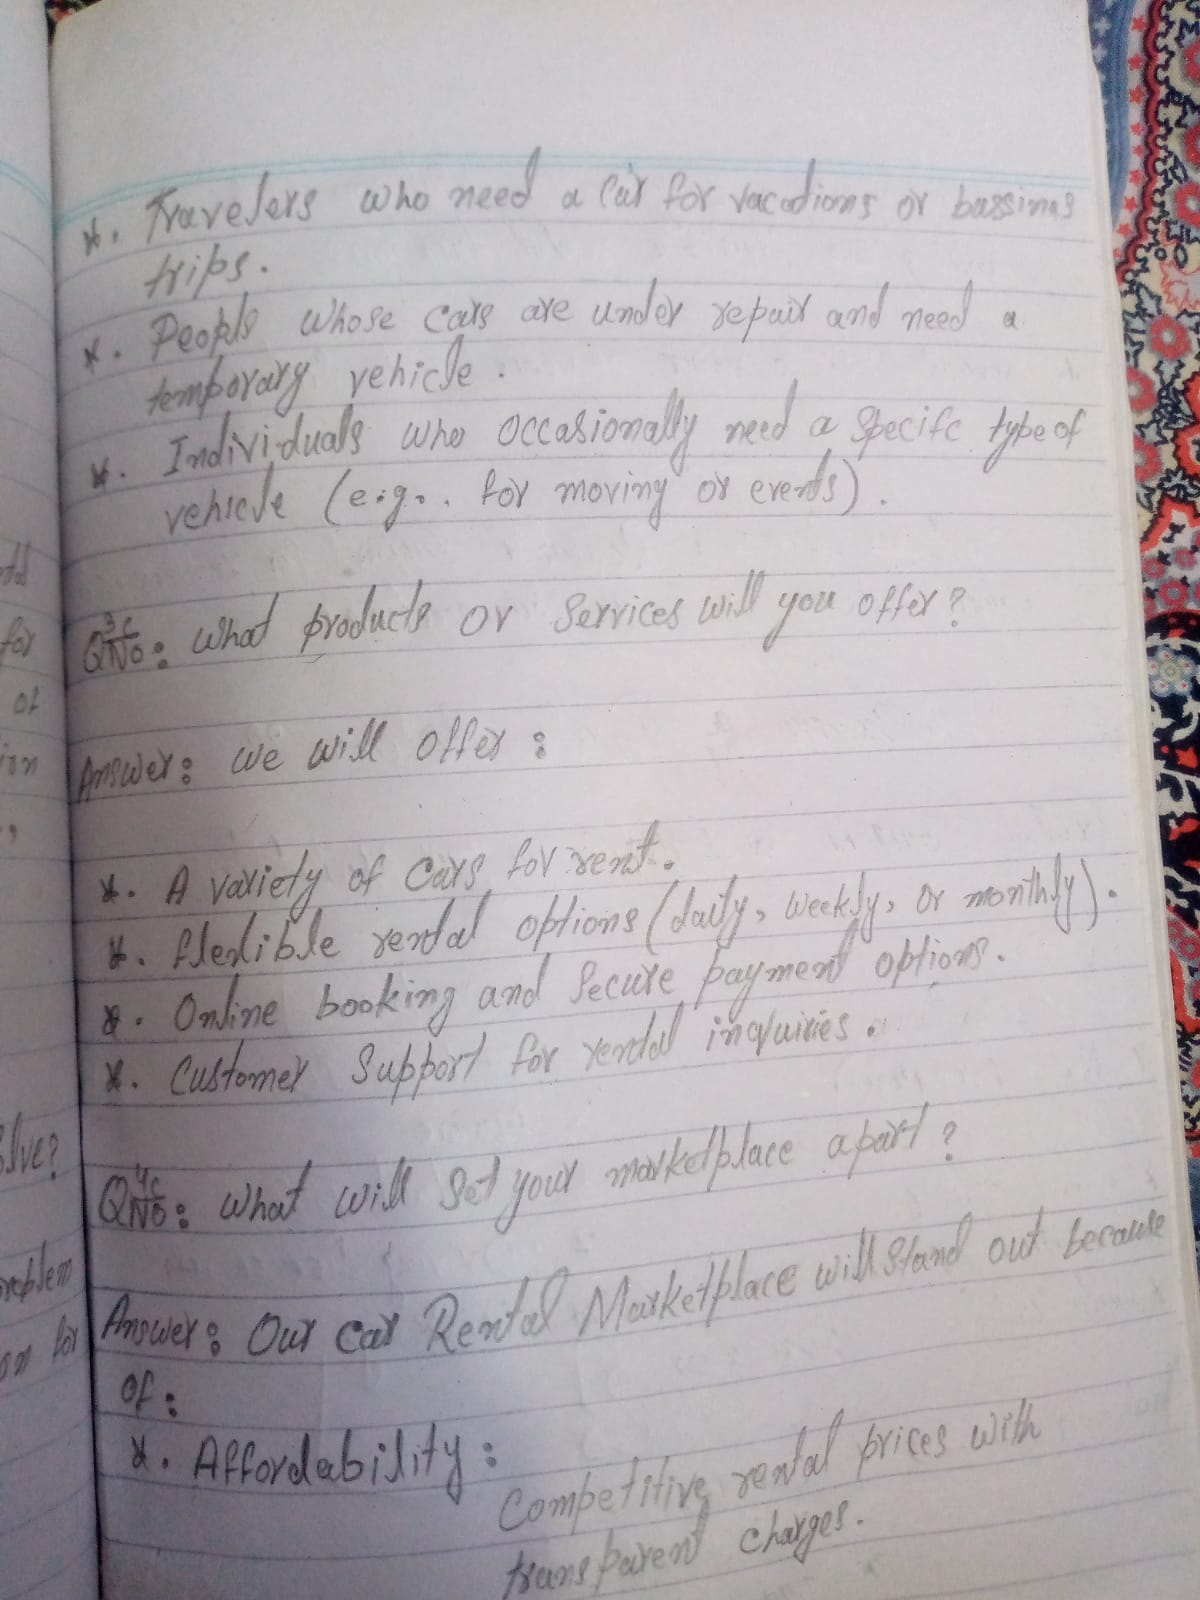 *. Travelers who need a car for vacations or bussines
trips.
*. People whose cars are under repair and need a
temporary vehicle.
*. Individuals who occasionally need a specifc type of
vehicle (e.g.. for moving or events).
QNo 3: What products or services will you offer?
Answer: We will offer:
*. A variety of cars for rent.
*. flexible rental options (daily, weekly, or monthly).
*. Online booking and secure payment options.
*. Customer support for rental inquiries.
QNo 4: What will set your marketplace apart?
Answer: Our Car Rental Marketplace will stand out because
of:
*. Affordability:
Competitive rental prices with
transparent charges.
for
of
solve?
problem
on for